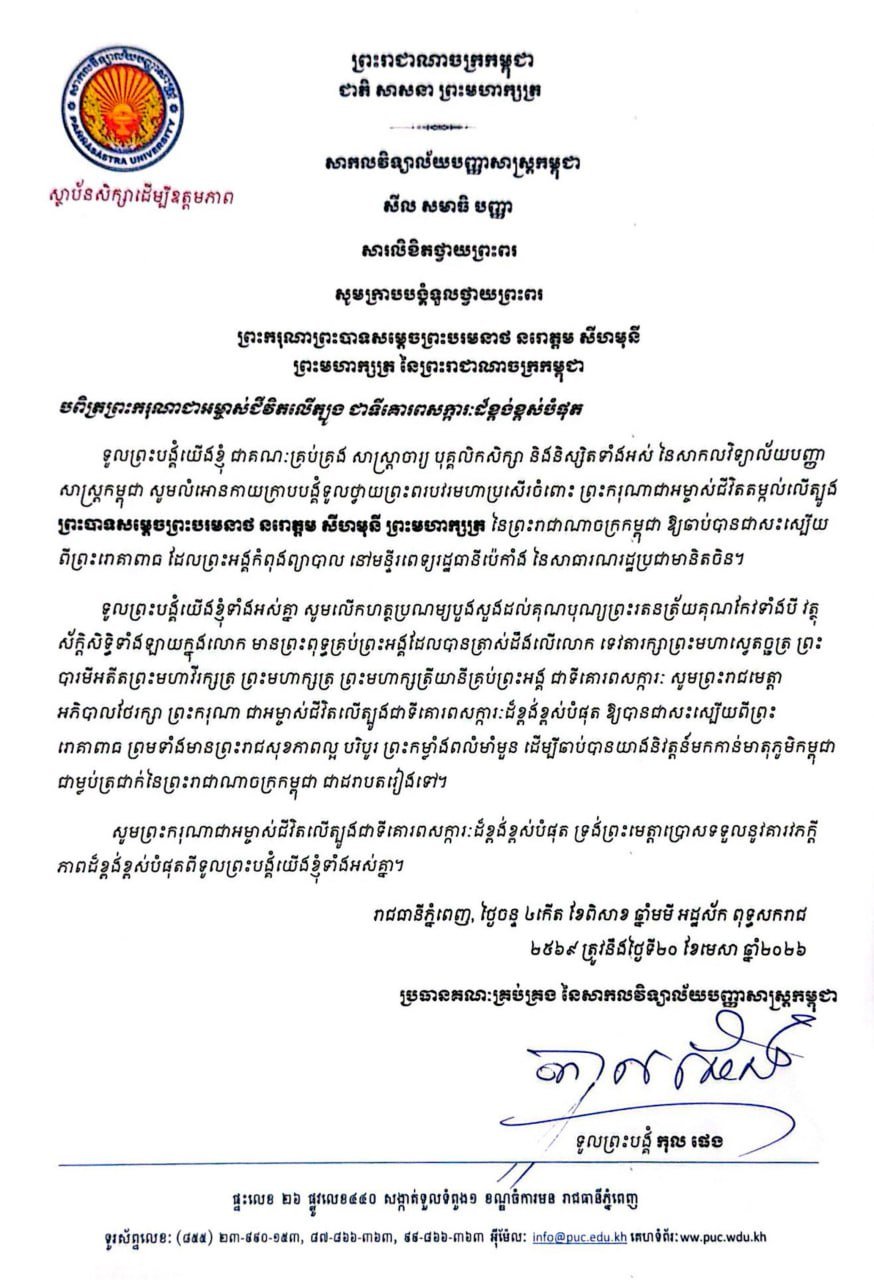 សាកលវិទ្យាល័យបញ្ញាសាស្ត្រ
PANNASASTRA UNIVERSITY
ស្ថាប័នសិក្សាដើម្បីឧត្តមភាព
ព្រះរាជាណាចក្រកម្ពុជា
ជាតិ សាសនា ព្រះមហាក្សត្រ
សាកលវិទ្យាល័យបញ្ញាសាស្ត្រកម្ពុជា
សីល សមាធិ បញ្ញា
សារលិខិតថ្វាយព្រះពរ
សូមក្រាបបង្គំទូលថ្វាយព្រះពរ
ព្រះករុណាព្រះបាទសម្តេចព្រះបរមនាថ នរោត្តម សីហមុនី
ព្រះមហាក្សត្រ នៃព្រះរាជាណាចក្រកម្ពុជា
បពិត្រព្រះករុណាជាអម្ចាស់ជីវិតលើត្បូង ជាទីគោរពសក្ការៈដ៏ខ្ពង់ខ្ពស់បំផុត
ទូលព្រះបង្គំយើងខ្ញុំ ជាគណៈគ្រប់គ្រង សាស្ត្រាចារ្យ បុគ្គលិកសិក្សា និងនិស្សិតទាំងអស់ នៃសាកលវិទ្យាល័យបញ្ញា
សាស្ត្រកម្ពុជា សូមលំអោនកាយក្រាបបង្គំទូលថ្វាយព្រះពរបវរមហាប្រសើរចំពោះ ព្រះករុណាជាអម្ចាស់ជីវិតតម្កល់លើត្បូង
ព្រះបាទសម្តេចព្រះបរមនាថ នរោត្តម សីហមុនី ព្រះមហាក្សត្រ នៃព្រះរាជាណាចក្រកម្ពុជា ឱ្យឆាប់បានជាសះស្បើយ
ពីព្រះរោគាពាធ ដែលព្រះអង្គកំពុងព្យាបាល នៅមន្ទីរពេទ្យរដ្ឋធានីប៉េកាំង នៃសាធារណរដ្ឋប្រជាមានិតចិន។
ទូលព្រះបង្គំយើងខ្ញុំទាំងអស់គ្នា សូមលើកហត្ថប្រណម្យបួងសួងដល់គុណបុណ្យព្រះរតនត្រ័យគុណកែវទាំងបី វត្ថុ
ស័ក្តិសិទ្ធិទាំងឡាយក្នុងលោក មានព្រះពុទ្ធគ្រប់ព្រះអង្គដែលបានត្រាស់ដឹងលើលោក ទេវតារក្សាព្រះមហាស្វេតច្ឆត្រ ព្រះ
បារមីអតីតព្រះមហាវីរក្សត្រ ព្រះមហាក្សត្រ ព្រះមហាក្សត្រីយានីគ្រប់ព្រះអង្គ ជាទីគោរពសក្ការៈ សូមព្រះរាជមេត្តា
អភិបាលថែរក្សា ព្រះករុណា ជាអម្ចាស់ជីវិតលើត្បូងជាទីគោរពសក្ការៈដ៏ខ្ពង់ខ្ពស់បំផុត ឱ្យបានជាសះស្បើយពីព្រះ
រោគាពាធ ព្រមទាំងមានព្រះរាជសុខភាពល្អ បរិបូរ ព្រះកម្លាំងពលំមាំមួន ដើម្បីឆាប់បានយាងនិវត្តន៍មកកាន់មាតុភូមិកម្ពុជា
ជាម្លប់ត្រជាក់នៃព្រះរាជាណាចក្រកម្ពុជា ជាដរាបតរៀងទៅ។
សូមព្រះករុណាជាអម្ចាស់ជីវិតលើត្បូងជាទីគោរពសក្ការៈដ៏ខ្ពង់ខ្ពស់បំផុត ទ្រង់ព្រះមេត្តាប្រោសទទួលនូវគារវភក្តី
ភាពដ៏ខ្ពង់ខ្ពស់បំផុតពីទូលព្រះបង្គំយើងខ្ញុំទាំងអស់គ្នា។
រាជធានីភ្នំពេញ, ថ្ងៃចន្ទ ៤កើត ខែពិសាខ ឆ្នាំមមី អដ្ឋស័ក ពុទ្ធសករាជ
២៥៦៩ ត្រូវនឹងថ្ងៃទី២០ ខែមេសា ឆ្នាំ២០២៦
ប្រធានគណៈគ្រប់គ្រង នៃសាកលវិទ្យាល័យបញ្ញាសាស្ត្រកម្ពុជា
ទូលព្រះបង្គំ កុល ផេង
ផ្ទះលេខ ២៦ ផ្លូវលេខ៤៤០ សង្កាត់ទួលទំពូង១ ខណ្ឌចំការមន រាជធានីភ្នំពេញ
ទូរស័ព្ទលេខ: (៨៥៥) ២៣-៩៩០-១៥៣, ៨៧-៨៦៦-៣៦៣, ៩៩-៨៦៦-៣៦៣ អ៊ីម៉ែល: info@puc.edu.kh គេហទំព័រ:ww.puc.wdu.kh